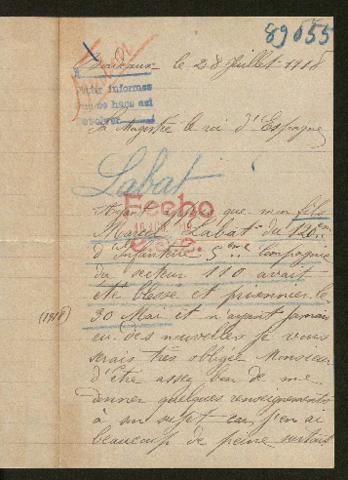 89655
Bordeaux le 28 Juillet 1918
Pedir informes
que se haga así
resolver
Sa Magesté le roi d'Espagne
Labat
Fecho
Ayant appris que mon fils
Marcel Labat du 120ème
d'Infanterie 5ème Compagnie
du secteur 110 avait
été blessé et prisonnier le
(1918) 30 Mai et n'ayant jamais
eu des nouvelles je vous
serais très obligée Monsieur
d'être assez bon de me
donner quelques renseignements
à son sujet car j'en ai
beaucoup de peine surtout